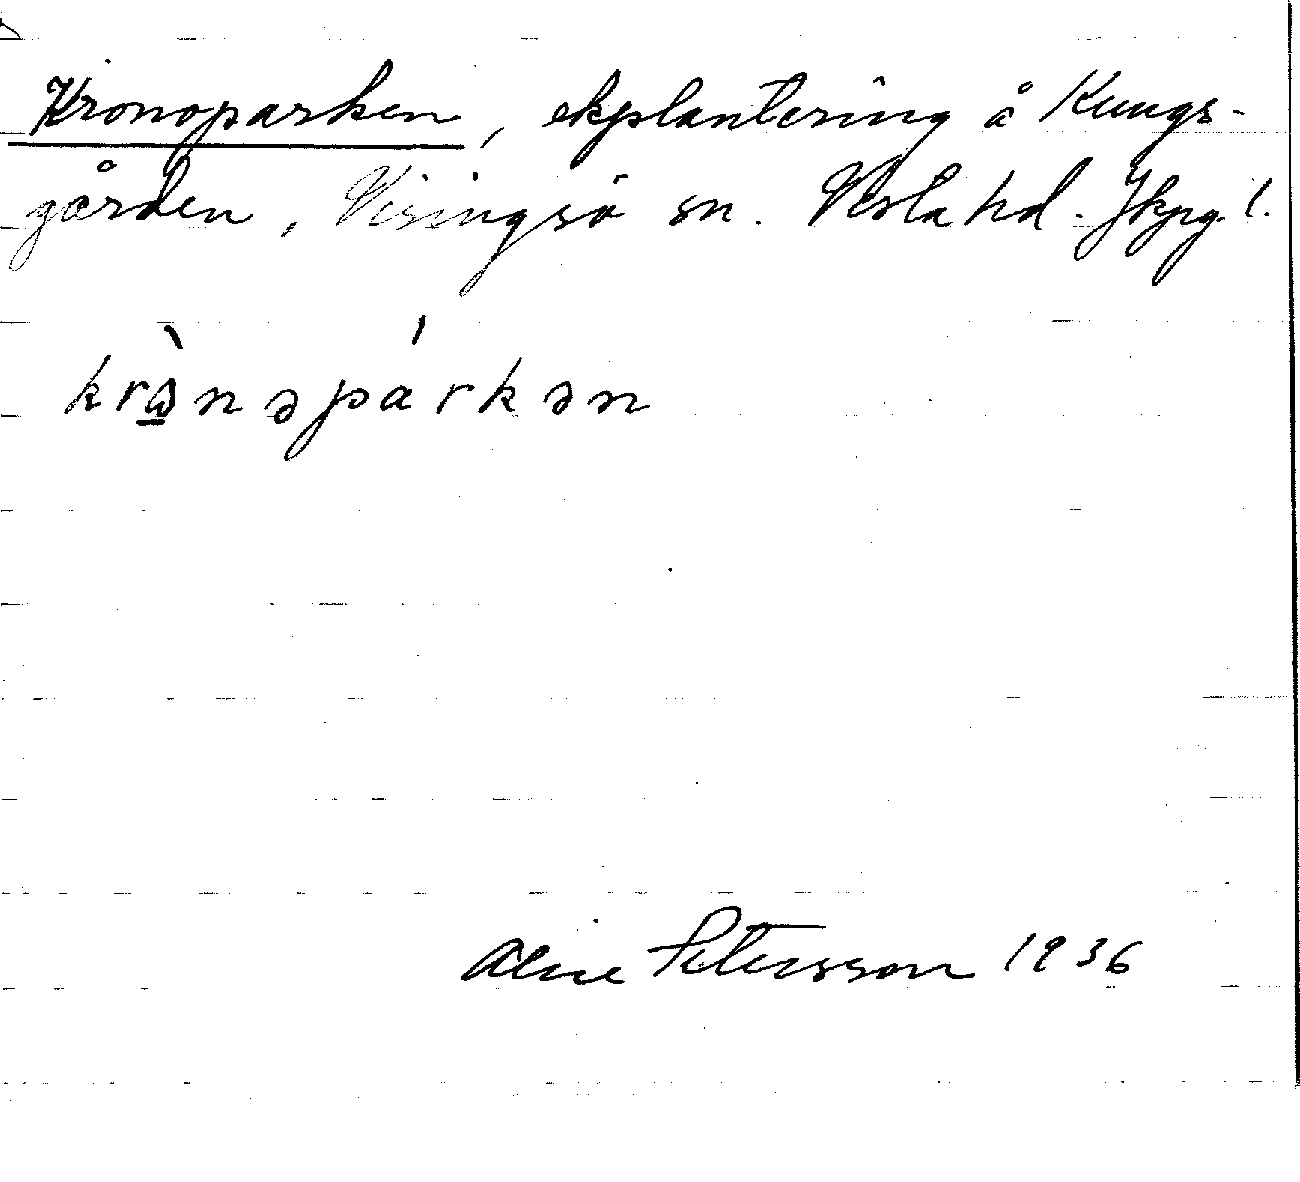 Kronoparken, ekplantering å Kungs-
gården, Visingsö sn. Vista hd. Jkpg. l.
krὼnəpárkən
Alice Petersson 1936